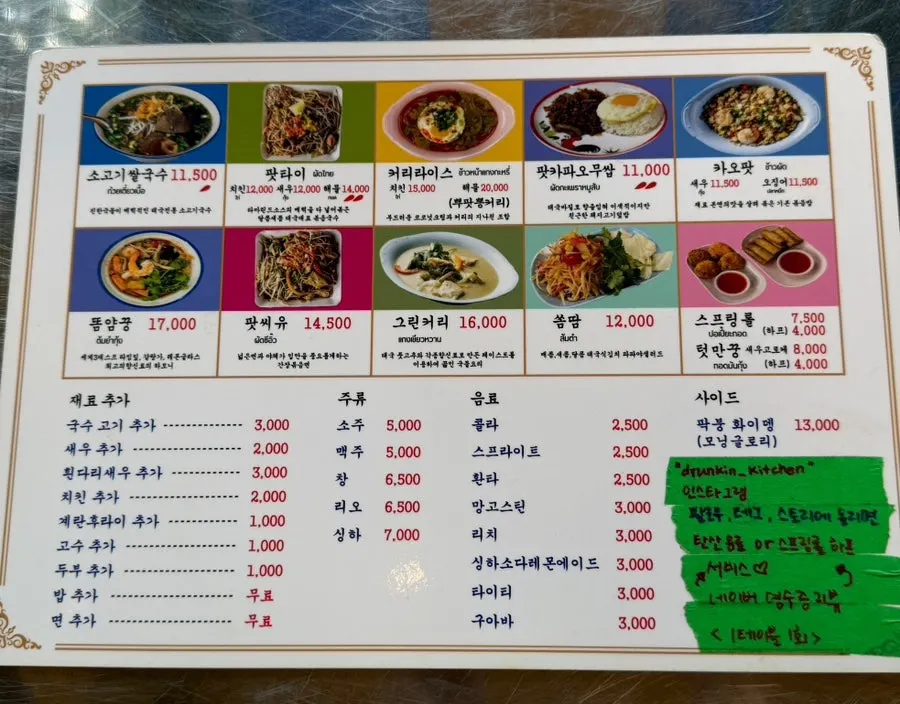 소고기쌀국수 11,500
ก๋วยเตี๋ยวเนื้อ
진한국물이 매력적인 태국전통 소고기국수
팟타이 ผัดไทย
치킨 12,000 새우 12,000 해물 14,000
ไก่ กุ้ง ทะเล
타마린드소스의 매력을 다 넣어볶은
달콤새콤 태국대표 볶음국수
커리라이스 ข้าวหน้าแกงกะหรี่
치킨 15,000 해물 20,000
ไก่ (뿌팟뽕커리)
부드러운 코코넛크림과 커리의 지나친 조합
팟카파오무쌉 11,000
ผัดกะเพราหมูสับ
태국바질로 향을입혀 이색적이지만
친근한 돼지고기덮밥
카오팟 ข้าวผัด
새우 11,500 오징어 11,500
กุ้ง ปลาหมึก
재료 본연의맛을 살려 볶은 기본 볶음밥
똠얌꿍 17,000
ต้มยำกุ้ง
세계3대스프 라임잎, 갈랑가, 레몬글라스
최고의향신료의 하모니
팟씨유 14,500
ผัดซีอิ๊ว
넓은면과 야채가 입안을 풍요롭게하는
간장볶음면
그린커리 16,000
แกงเขียวหวาน
태국 풋고추와 각종향신료로 만든 페이스트를
이용하여 끓인 국물요리
쏨땀 12,000
ส้มตำ
매콤,새콤,달콤 태국식김치 파파야샐러드
스프링롤 7,500
ปอเปี๊ยะทอด (하프) 4,000
텃만꿍 새우고로케 8,000
ทอดมันกุ้ง (하프) 4,000
재료 추가
국수 고기 추가 3,000
새우 추가 2,000
흰다리새우 추가 3,000
치킨 추가 2,000
계란후라이 추가 1,000
고수 추가 1,000
두부 추가 1,000
밥 추가 무료
면 추가 무료
주류
소주 5,000
맥주 5,000
창 6,500
리오 6,500
싱하 7,000
음료
콜라 2,500
스프라이트 2,500
환타 2,500
망고스틴 3,000
리치 3,000
싱하소다레몬에이드 3,000
타이티 3,000
구아바 3,000
사이드
팍붕 화이댕 13,000
(모닝글로리)
"drunkin_kitchen"
인스타그램
팔로우, 태그, 스토리에 올리면
탄산음료 or 스프링롤 하프
서비스♡
네이버 영수증 리뷰
< 1테이블 1회 >